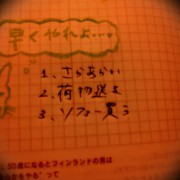 早くやれよ…。
1、さかあがり
2、荷物送る
3、ソファー買う
50歳になるとフィンランドの男は